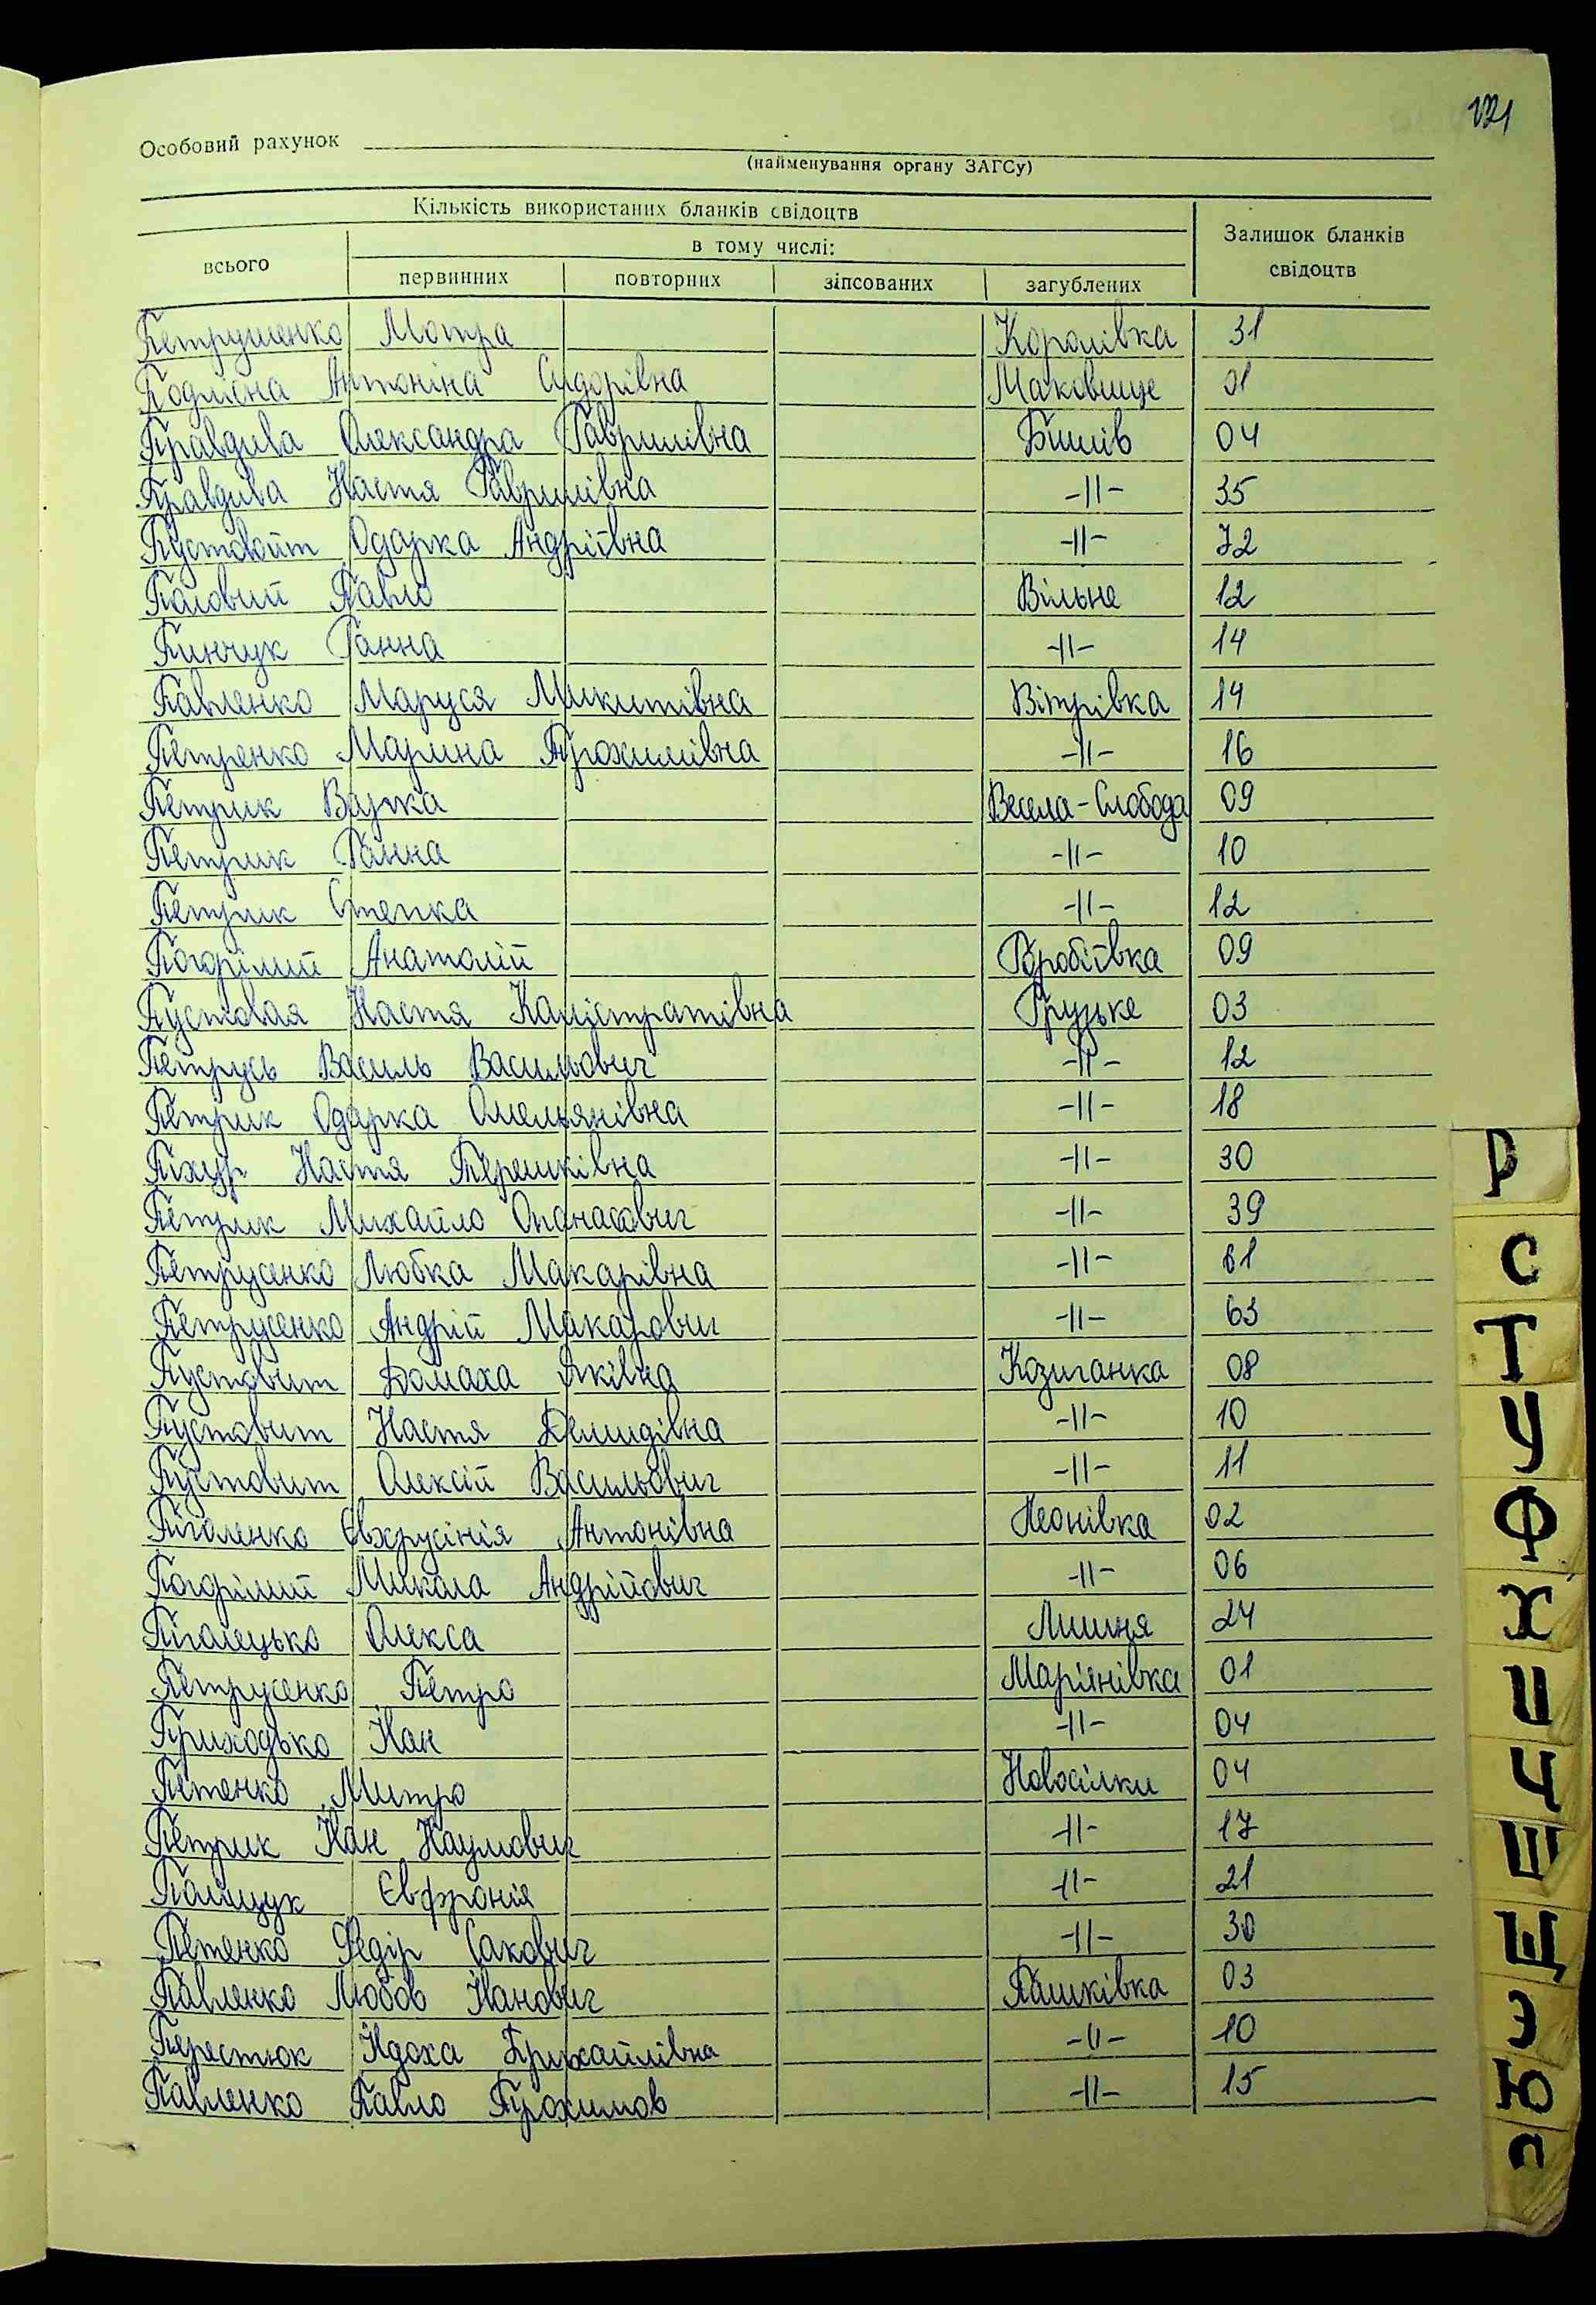 171
Особовий рахунок
(найменування органу ЗАГСу)
Кількість використаних бланків свідоцтв
Залишок бланків свідоцтв
в тому числі:
всього первинних повторних зіпсованих загублених
Петрушенко Мотра Королівка 31
Подлісна Антоніна Сидорівна Маковище 01
Правдива Олександра Гаврилівна Бишів 04
Правдива Настя Гаврилівна -||- 35
Пустовойт Одарка Андріївна -||- 72
Паловий Павло Вільне 12
Пинчук Ганна -||- 14
Павленко Маруся Микитівна Вітрівка 14
Петренко Марина Прохимівна -||- 16
Петрик Варка Весела-Слобода 09
Петрик Ганна -||- 10
Петрик Степка -||- 12
Погорілий Анатолій Горобіївка 09
Пустовая Настя Калістратівна Грузьке 03
Петрусь Василь Васильович -||- 12
Петрик Одарка Омельянівна -||- 18
Піхур Настя Терешківна -||- 30
Петрик Михайло Опанасович -||- 39
Петрусенко Любка Макарівна -||- 61
Петрусенко Андрій Макарович -||- 63
Пустовит Домаха Яківна Козичанка 08
Пустовит Настя Демидівна -||- 10
Пустовит Олексій Васильович -||- 11
Піголенко Євхрусінія Антонівна Леонівка 02
Погорілий Микола Андрійович -||- 06
Олекса Лишня 24
Петрусенко Петро Мар'янівка 01
Приходько Іван -||- 04
Петенко Митро Новосілки 04
Петрик Іван Наумович -||- 17
Поліщук Євфронія -||- 21
Петенко Федір Сакович -||- 30
Павленко Любов Іванович Пашківка 03
Перестюк Ядоха -||- 10
Павленко Павло Прохимов -||- 15
Р
С
Т
У
Ф
Х
Ц
Ч
Ш
Щ
Э
Ю